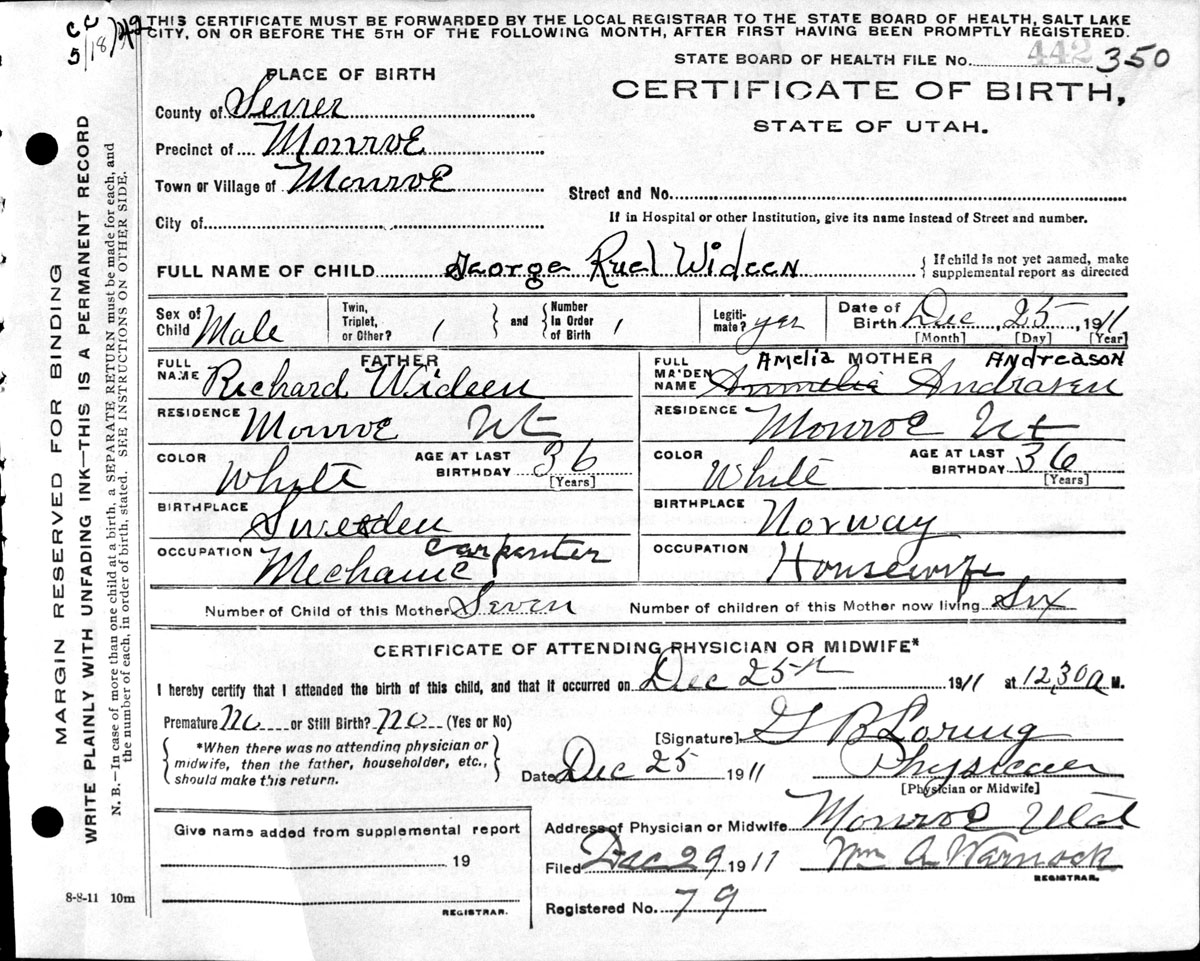 CC
5/18/42
THIS CERTIFICATE MUST BE FORWARDED BY THE LOCAL REGISTRAR TO THE STATE BOARD OF HEALTH, SALT LAKE
CITY, ON OR BEFORE THE 5TH OF THE FOLLOWING MONTH, AFTER FIRST HAVING BEEN PROMPTLY REGISTERED.
STATE BOARD OF HEALTH FILE No. 442 350
PLACE OF BIRTH
CERTIFICATE OF BIRTH,
STATE OF UTAH.
County of Sevier
Precinct of Monroe
Town or Village of Monroe
Street and No.
City of
If in Hospital or other Institution, give its name instead of Street and number.
FULL NAME OF CHILD George Ruel Wideen { If child is not yet named, make
supplemental report as directed
Sex of
Child Male
Twin,
Triplet,
or Other? 1 } and { Number
In Order
of Birth 1
Legiti-
mate? yes
Date of
Birth Dec, 25, 1911
[Month] [Day] [Year]
FULL
NAME
FATHER
Richard Wideen
RESIDENCE
Monroe Ut
COLOR
White
AGE AT LAST
BIRTHDAY 36
[Years]
BIRTHPLACE
Sweden
OCCUPATION
Mechanic Carpenter
FULL
MAIDEN
NAME
Amelia MOTHER Andreason
Ammelia Andrasen
RESIDENCE
Monroe Ut
COLOR
White
AGE AT LAST
BIRTHDAY 36
[Years]
BIRTHPLACE
Norway
OCCUPATION
Housewife
Number of Child of this Mother Seven Number of children of this Mother now living Six
CERTIFICATE OF ATTENDING PHYSICIAN OR MIDWIFE*
I hereby certify that I attended the birth of this child, and that it occurred on Dec 25th 1911 at 12,30 a M.
Premature No or Still Birth? No (Yes or No)
{ *When there was no attending physician or
midwife, then the father, householder, etc.,
should make this return. }
[Signature] G B Loring
Date Dec 25 1911 Physician
[Physician or Midwife]
Give name added from supplemental report
19
REGISTRAR.
Address of Physician or Midwife Monroe Utah
Filed Dec 29 1911 Wm A Warnock
REGISTRAR.
Registered No. 79
8-8-11 10m
MARGIN RESERVED FOR BINDING
WRITE PLAINLY WITH UNFADING INK—THIS IS A PERMANENT RECORD
N. B.—In case of more than one child at a birth, a SEPARATE RETURN must be made for each, and
the number of each, in order of birth, stated. SEE INSTRUCTIONS ON OTHER SIDE.